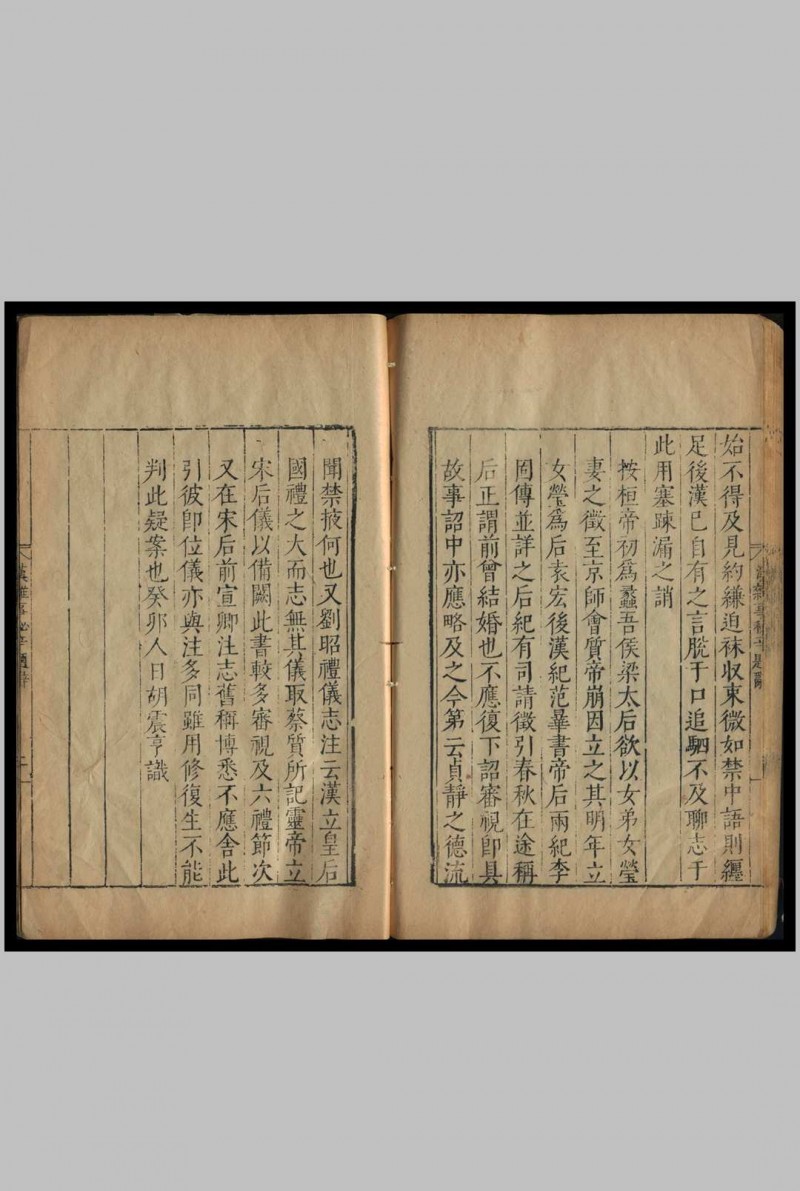 始不得及見約縑迫袜收束微如禁中語則纏
足後漢已自有之言脫于口追駟不及聊志于
此用塞踈漏之誚
按桓帝初爲蠡吾侯梁太后欲以女弟女瑩
妻之徵至京師會質帝崩因立之其明年立
女瑩爲后袁宏後漢紀范曅書帝后兩紀李
固傳並詳之后紀有司請徵引春秋在途稱
后正謂前曾結婚也不應復下詔審視即具
故事詔中亦應略及之今第云貞静之德流
聞禁掖何也又劉昭禮儀志注云漢立皇后
國禮之大而志無其儀取蔡質所記靈帝立
宋后儀以備闕此書較多審視及六禮節次
又在宋后前宣卿注志舊稱博悉不應舍此
引彼即位儀亦與注多同雖用修復生不能
判此疑案也癸卯人日胡震亨識